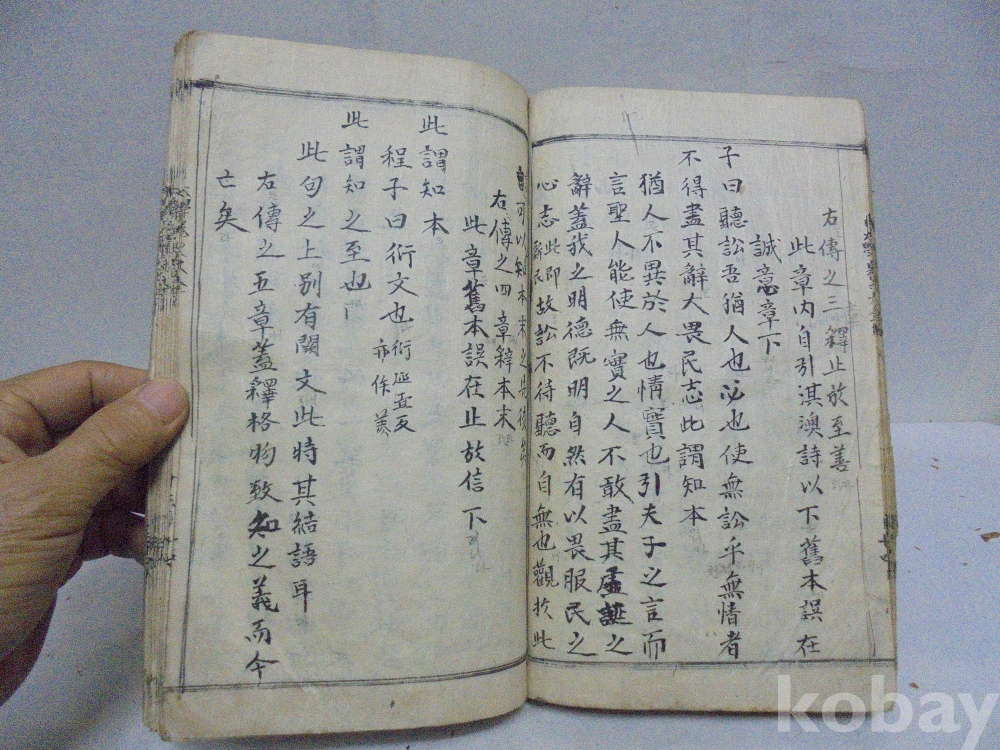 右傳之三釋止於至善
此章內自引淇澳詩以下舊本誤在
誠意章下
子曰聽訟吾猶人也必也使無訟乎無情者
不得盡其辭大畏民志此謂知本
猶人不異於人也情實也引夫子之言而
言聖人能使無實之人不敢盡其虛誕之
辭蓋我之明德旣明自然有以畏服民之
心志此卽新民故訟不待聽而自無也觀於此
言可以知本末之先後矣
右傳之四章釋本末
此章舊本誤在止於信下
此謂知本
程子曰衍文也
此謂知之至也
此句之上別有闕文此特其結語耳
右傳之五章蓋釋格物致知之義而今
亡矣
kobay